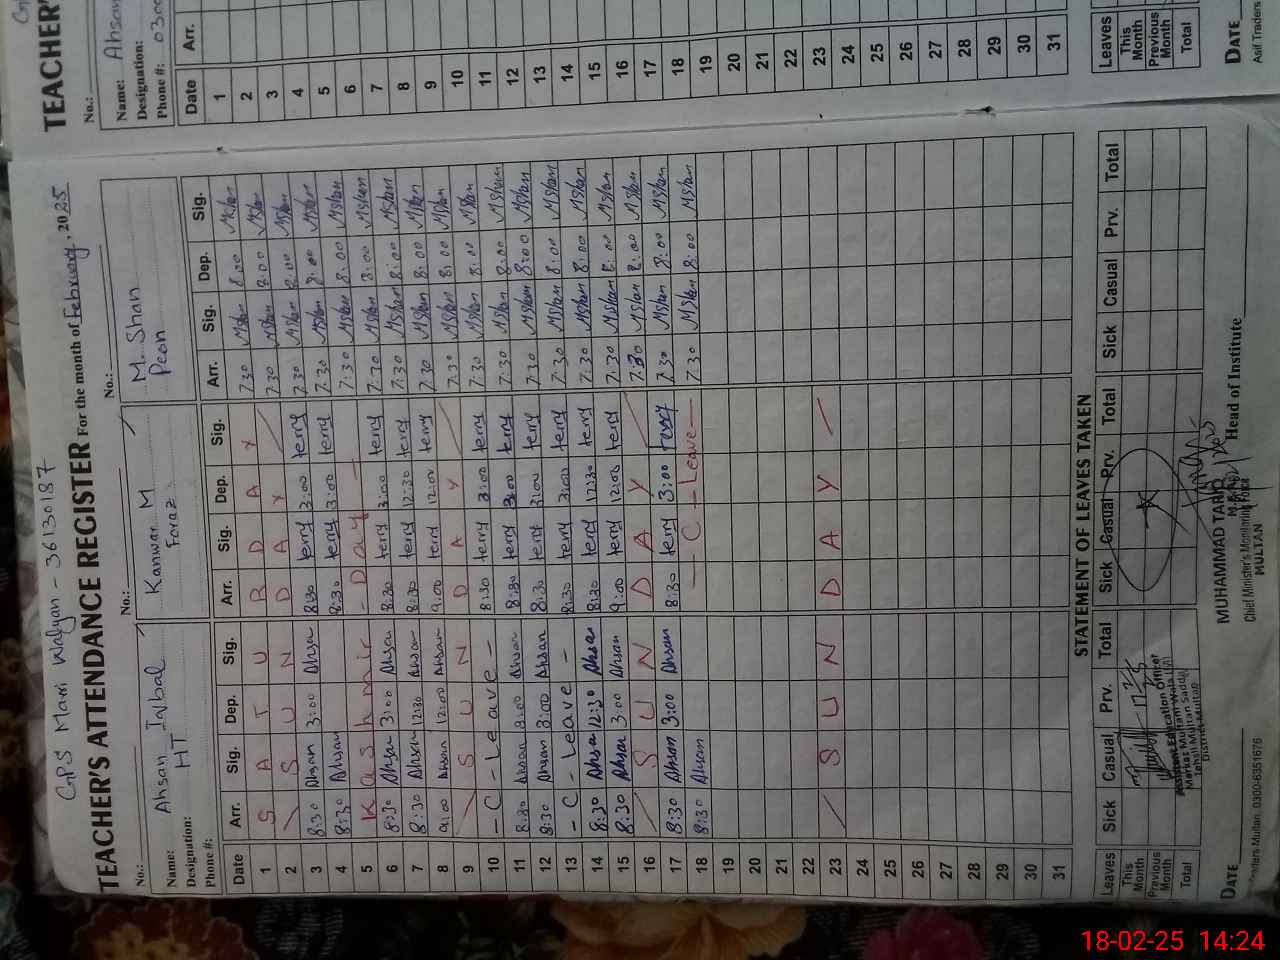 GPS Marri Walyan - 36130187
TEACHER'S ATTENDANCE REGISTER For the month of February, 2025
No.: No.: No.:
Name: Ahsan Iqbal Kanwar M Faraz M. Shan
Designation: HT Peon
Phone #:
Date Arr. Sig. Dep. Sig. Arr. Sig. Dep. Sig. Arr. Sig. Dep. Sig.
1 S A T U R D A Y 7.30 MShan 8:00 MShan
2 S U N D A Y 7.30 MShan 8:00 MShan
3 8:30 Ahsan 3:00 Ahsan 8:30 terry 3:00 terry 7.30 MShan 8:00 MShan
4 8:30 Ahsan 8:30 terry 3:00 terry 7.30 MShan 8:00 MShan
5 Kashmir Day 7:30 MShan 8:00 MShan
6 8:30 Ahsan 3:00 Ahsan 8:30 terry 3:00 terry 7.30 MShan 8:00 MShan
7 8:30 Ahsan 12:30 Ahsan 8:30 terry 12:30 terry 7.30 MShan 8:00 MShan
8 9:00 Ahsan 12:00 Ahsan 9:00 terry 12:00 terry 7.30 MShan 8:00 MShan
9 S U N D A Y 7.30 MShan 8:00 MShan
10 - C - Leave - 8:30 terry 3:00 terry 7.30 MShan 8:00 MShan
11 8:30 Ahsan 3:00 Ahsan 8:30 terry 3:00 terry 7.30 MShan 8:00 MShan
12 8:30 Ahsan 3:00 Ahsan 8:30 terry 3:00 terry 7.30 MShan 8:00 MShan
13 - C - Leave - 8:30 terry 3:00 terry 7.30 MShan 8:00 MShan
14 8:30 Ahsan 12:30 Ahsan 8:30 terry 12:30 terry 7.30 MShan 8:00 MShan
15 8:30 Ahsan 3:00 Ahsan 9:00 terry 12:00 terry 7.30 MShan 8:00 MShan
16 S U N D A Y 7:30 MShan 8:00 MShan
17 8:30 Ahsan 3:00 Ahsan 8:30 terry 3:00 terry 7.30 MShan 8:00 MShan
18 8:30 Ahsan - C - Leave - 7.30 MShan 8:00 MShan
19
20
21
22
23 S U N D A Y
24
25
26
27
28
29
30
31
STATEMENT OF LEAVES TAKEN
Leaves Sick Casual Prv. Total Sick Casual Prv. Total Sick Casual Prv. Total
This Month
Previous Month
Total
Assistant Education Officer
Markaz Multani Wala (M)
Tehsil Multan Saddar
District Multan
MUHAMMAD TARIQ
Chief Minister's Monitoring Force
MULTAN
DATE Head of Institute
Multan. 0300-6351676
TEACHER'S
No.:
Name: Ahsan
Designation:
Phone #: 0300
Date Arr.
1
2
3
4
5
6
7
8
9
10
11
12
13
14
15
16
17
18
19
20
21
22
23
24
25
26
27
28
29
30
31
Leaves
This Month
Previous Month
Total
DATE
Asif Traders
18-02-25 14:24